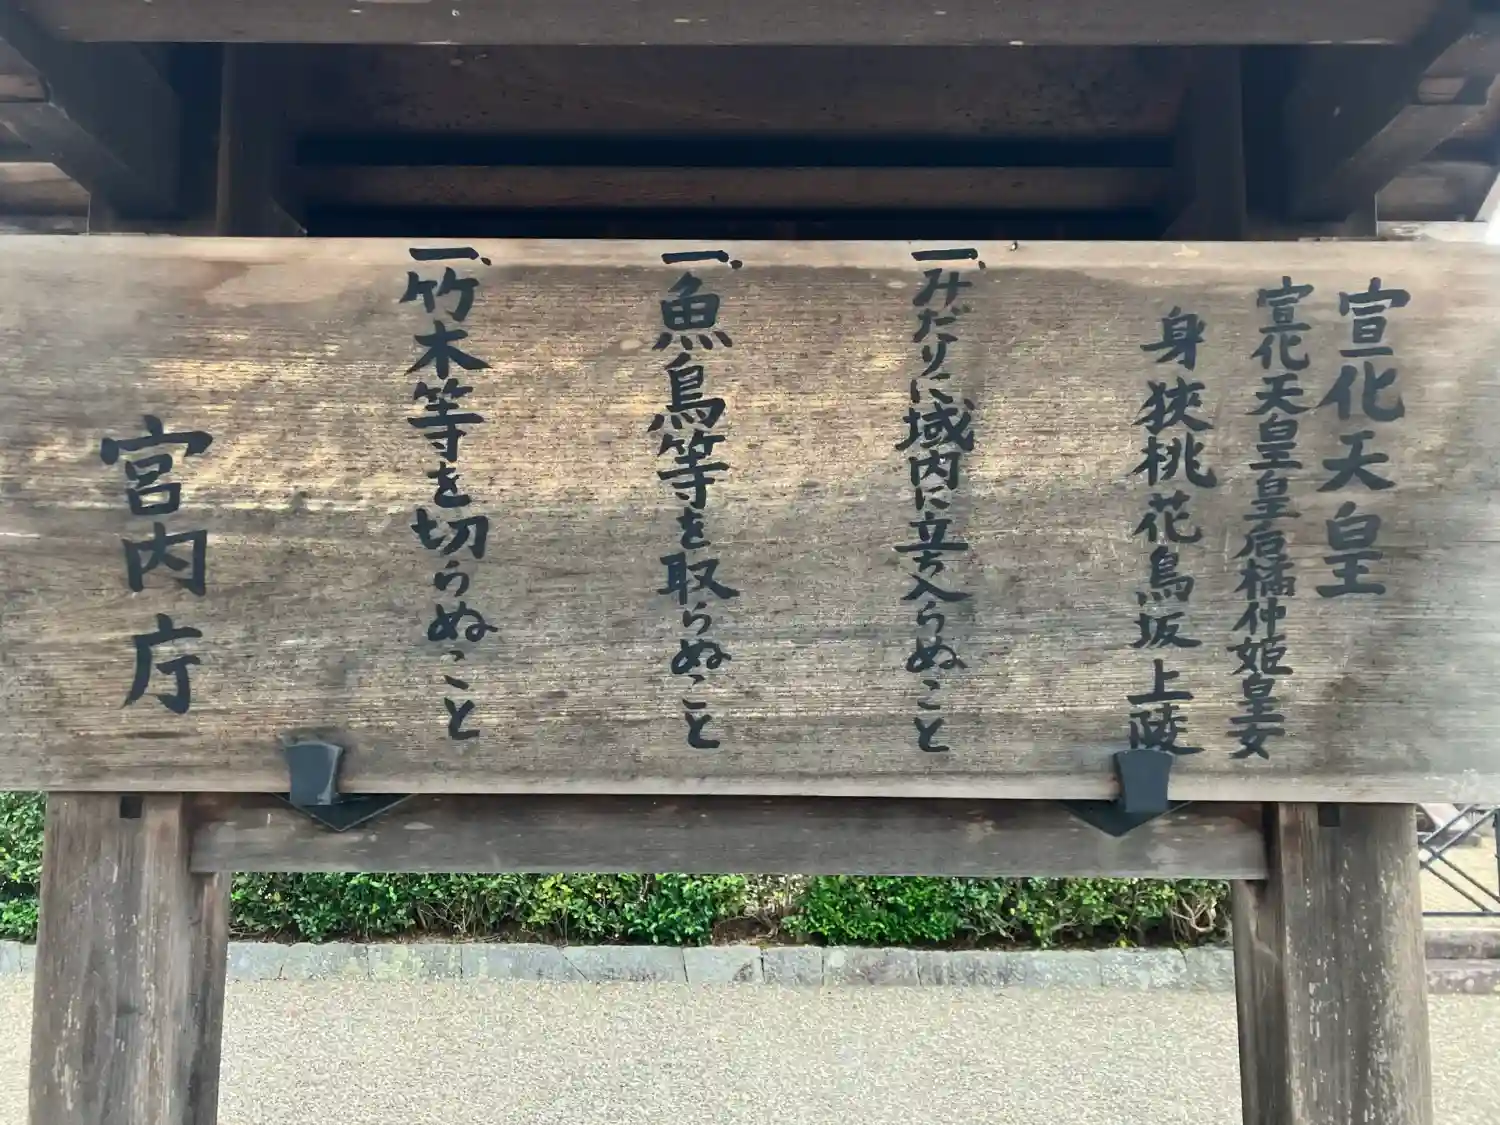 宣化天皇
宣化天皇皇后橘仲姫皇女
身狭桃花鳥坂上陵
一、みだりに域内に立ち入らぬこと
一、魚鳥等を取らぬこと
一、竹木等を切らぬこと
宮内庁